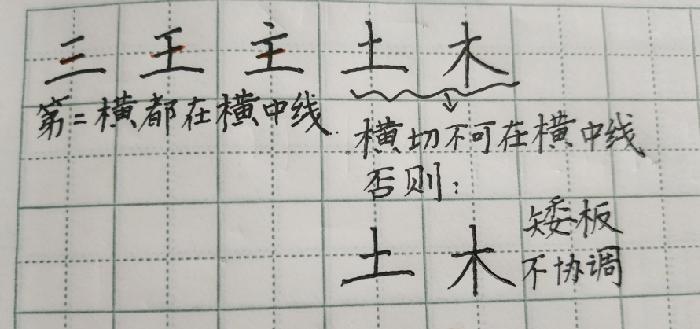 三 王 主 土 木
第二横都在横中线
横切不可在横中线
否则：
土 木 矮板
不协调